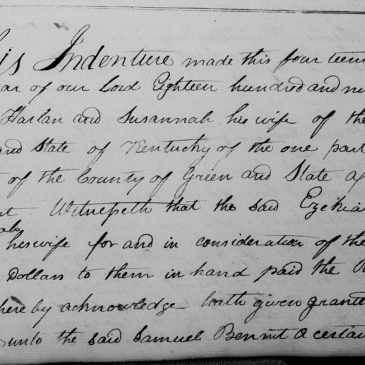 is Indenture made this four teen
ar of our Lord Eighteen hundred and ni
Harlan and Susannah his wife of the
and State of Kentucky of the one part
t of the County of Green and State af
at Witnesseth that the said Ezekia
his wife for and in consideration of the
Dollars to them in hand paid the
here by acknowledge hath given grante
unto the said Samuel Bennit a certain